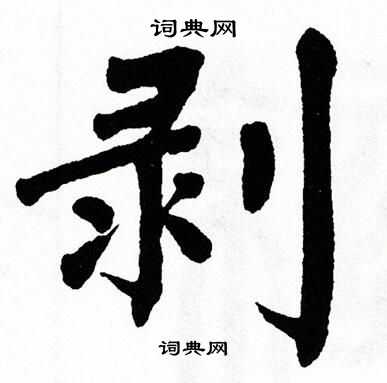 词典网
剥
词典网